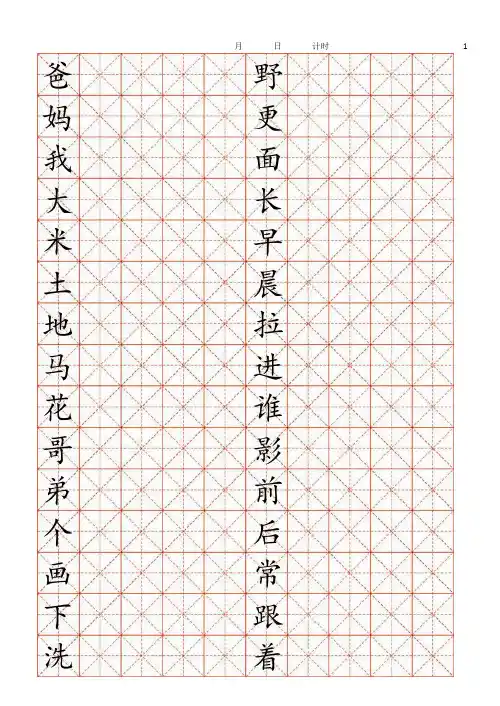 月 日 计时 1
爸 野
妈 更
我 面
大 长
米 早
土 晨
地 拉
马 进
花 谁
哥 影
弟 前
个 后
画 常
下 跟
洗 着